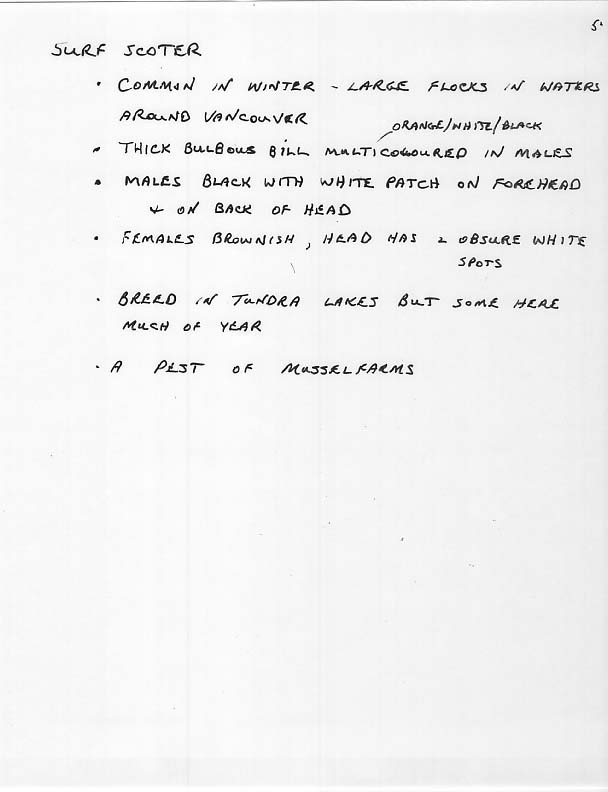 5.
SURF SCOTER
• COMMON IN WINTER - LARGE FLOCKS IN WATERS
AROUND VANCOUVER
ORANGE/WHITE/BLACK
• THICK BULBOUS BILL MULTICOLOURED IN MALES
• MALES BLACK WITH WHITE PATCH ON FOREHEAD
+ ON BACK OF HEAD
• FEMALES BROWNISH, HEAD HAS 2 OBSURE WHITE
SPOTS
• BREED IN TUNDRA LAKES BUT SOME HERE
MUCH OF YEAR
• A PEST OF MUSSELFARMS